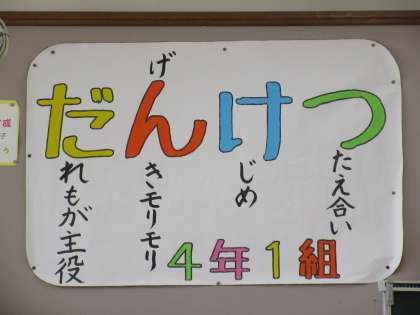 だれもが主役
げんきモリモリ
けじめ
つたえ合い
4年1組